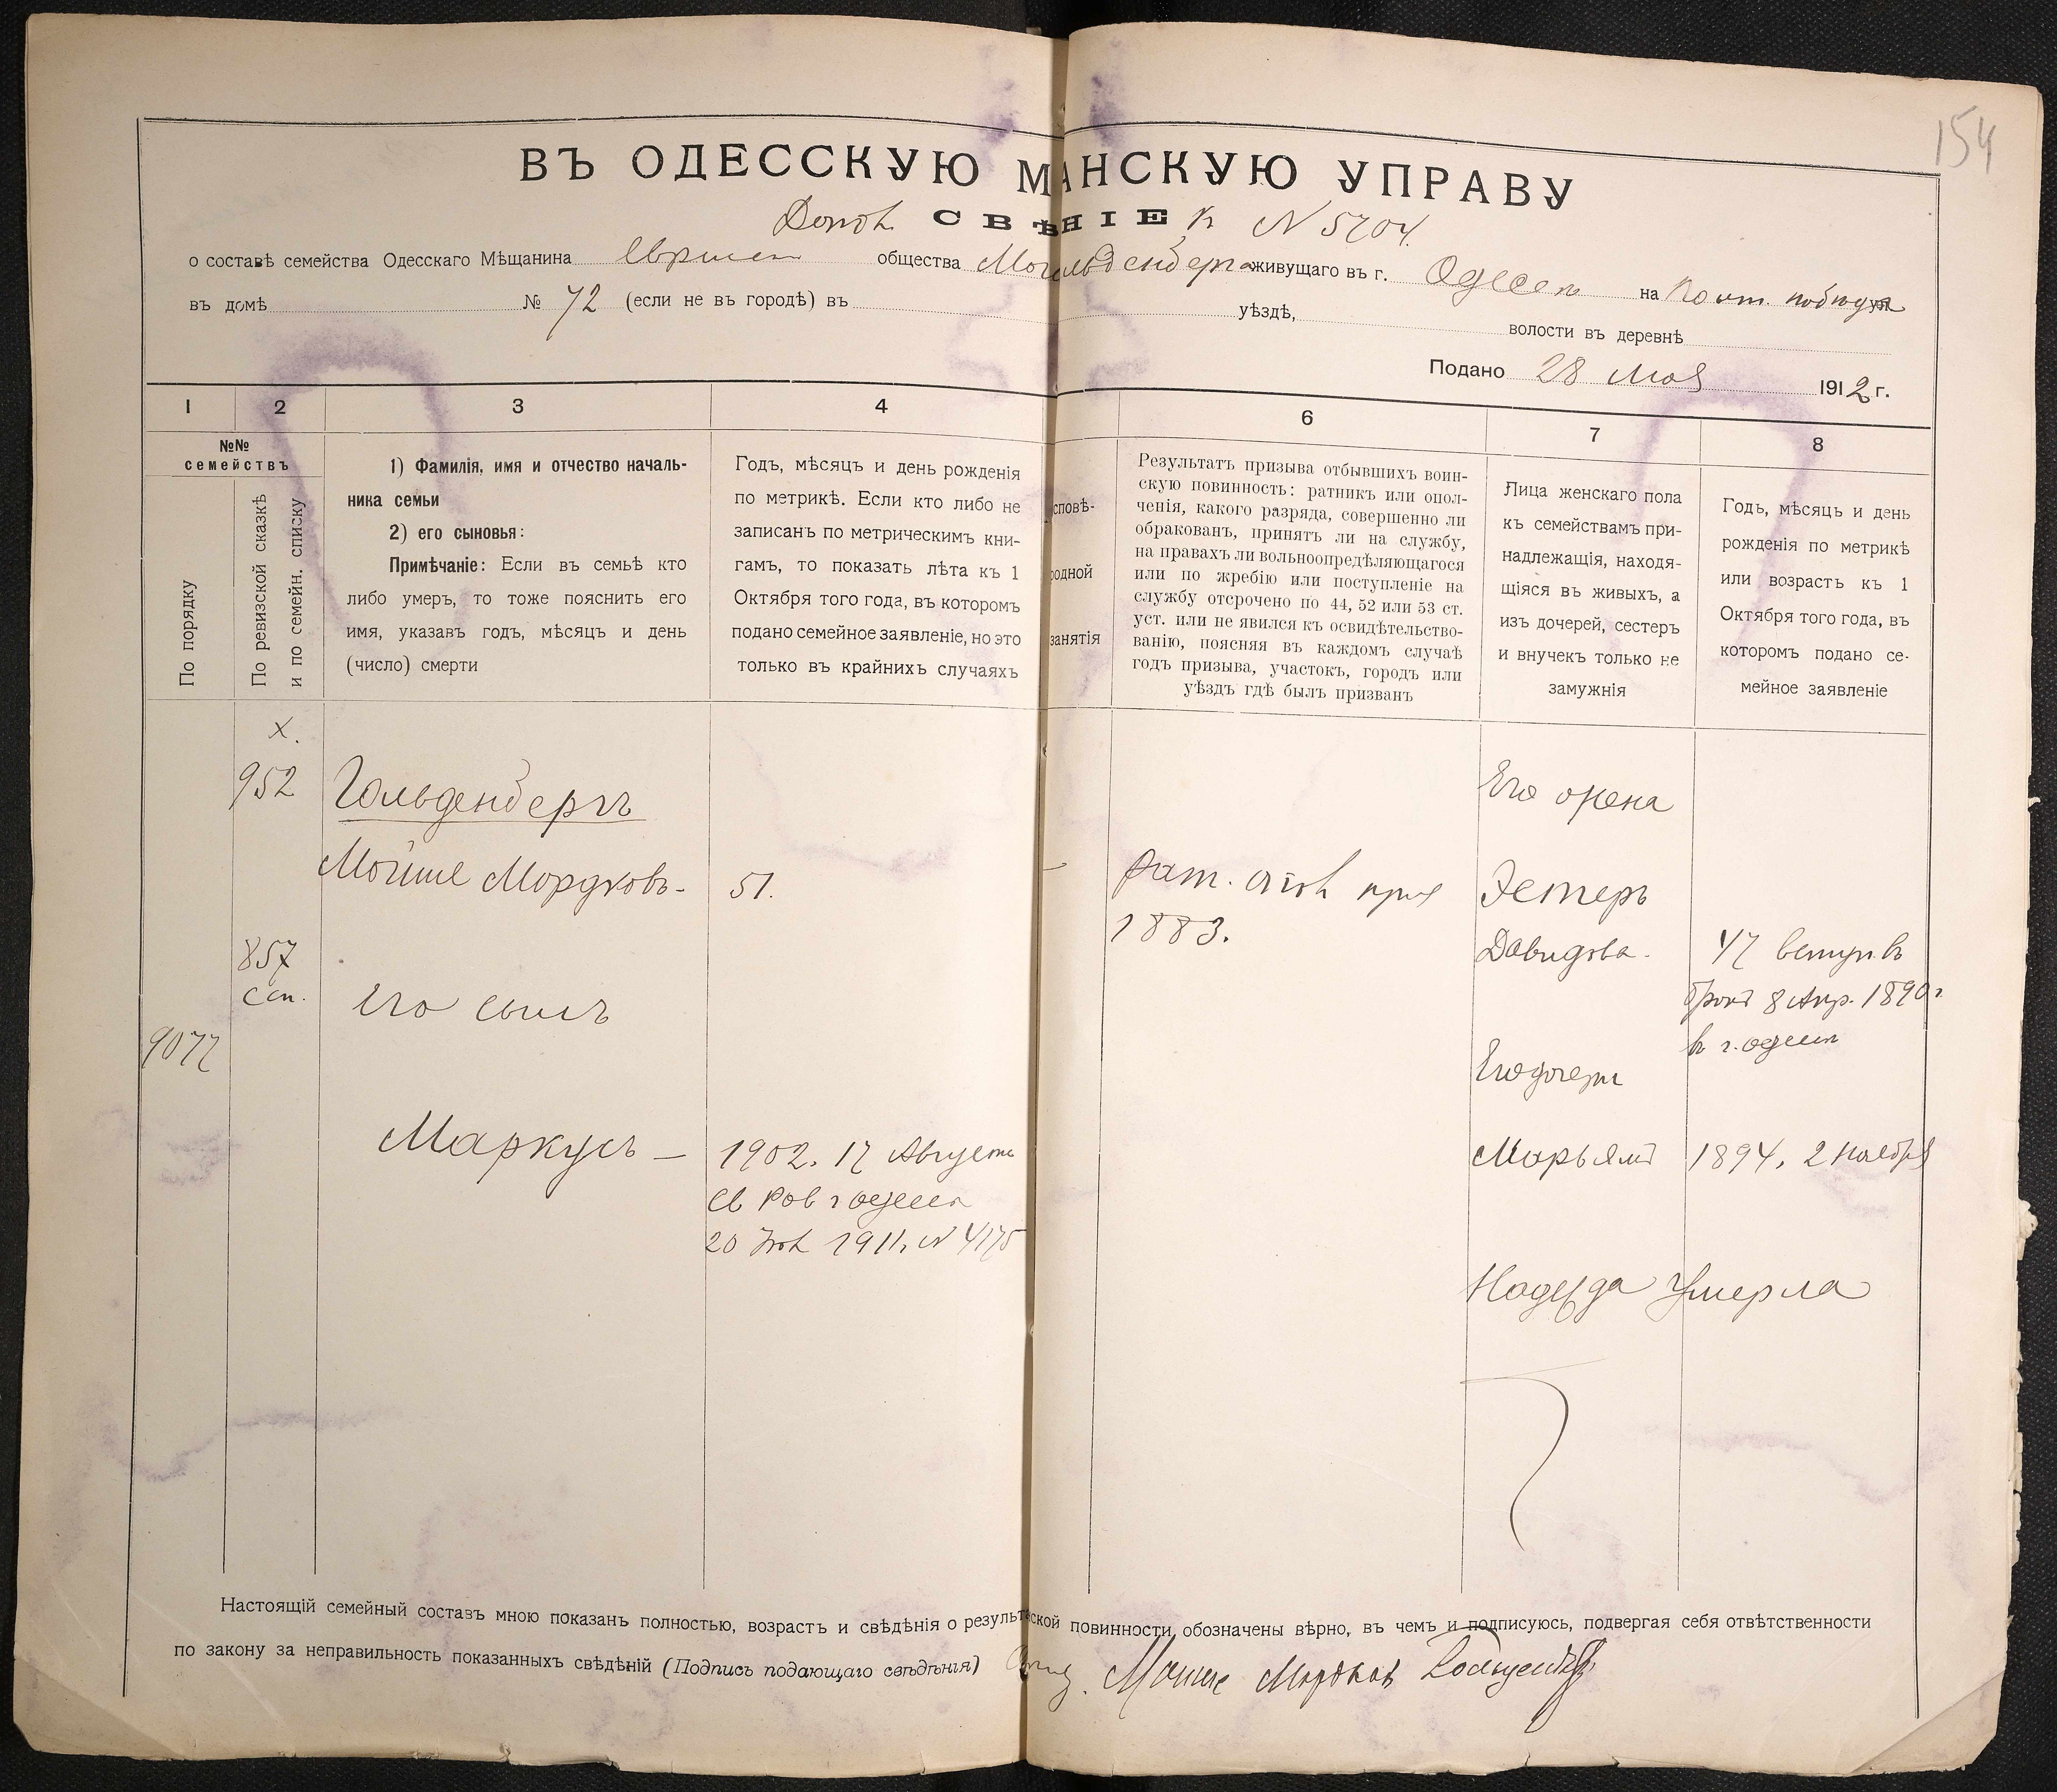 154
ВЪ ОДЕССКУЮ МАНСКУЮ УПРАВУ
СВѢНІЕ к N 5704.
о составѣ семейства Одесскаго Мѣщанина Еврейск общества М Гольденберга живущаго въ г. Одессѣ на
въ домѣ № 72 (если не въ городѣ) въ уѣздѣ, волости въ деревнѣ
Подано 28 Мая 1912 г.
1 2 3 4 6 7 8
№№
семействъ
По порядку
По ревизской сказкѣ
и по семейн. списку
1) Фамилія, имя и отчество началь-
ника семьи
2) его сыновья:
Примѣчаніе: Если въ семьѣ кто
либо умеръ, то тоже пояснить его
имя, указавъ годъ, мѣсяцъ и день
(число) смерти
Годъ, мѣсяцъ и день рожденія
по метрикѣ. Если кто либо не
записанъ по метрическимъ кни-
гамъ, то показать лѣта къ 1
Октября того года, въ которомъ
подано семейное заявленіе, но это
только въ крайнихъ случаяхъ
сповѣ-
родной
занятія
Результатъ призыва отбывшихъ воин-
скую повинность: ратникъ или опол-
ченія, какого разряда, совершенно ли
обракованъ, принятъ ли на службу,
на правахъ ли вольноопредѣляющагося
или по жребію или поступленіе на
службу отсрочено по 44, 52 или 53 ст.
уст. или не явился къ освидѣтельство-
ванію, поясняя въ каждомъ случаѣ
годъ призыва, участокъ, городъ или
уѣздъ гдѣ былъ призванъ
Лица женскаго пола
къ семействамъ при-
надлежащія, находя-
щіяся въ живыхъ, а
изъ дочерей, сестеръ
и внучекъ только не
замужнія
Годъ, мѣсяцъ и день
рожденія по метрикѣ
или возрастъ къ 1
Октября того года, въ
которомъ подано се-
мейное заявленіе
х.
952
857
сп.
9077
Гольденбергъ
Мойше Мордковъ- 51.
Его сынъ
Маркусъ — 1902. 17 Августа
Св Рав г Одессы
20 1911. N 4175
рат. опол приз
1883.
Его жена
Эстеръ
Давидова. 47 вступ. въ
бракъ 8 Апр. 1890 г
въ г. Одессѣ
Его дочери
Марьямъ 1894, 2 Ноября
Надежда Умерла
Настоящій семейный составъ мною показанъ полностью, возрастъ и свѣдѣнія о результ ской повинности обозначены вѣрно, въ чемъ и подписуюсь, подвергая себя отвѣтственности
по закону за неправильность показанныхъ свѣдѣній (Подпись подающаго свѣдѣнія) Мойше Мордков Гольденберг